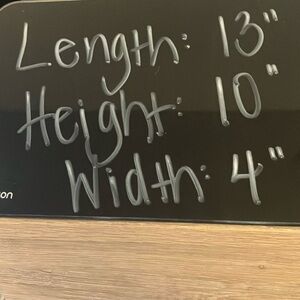 Length: 13"
Height: 10"
Width: 4"
on